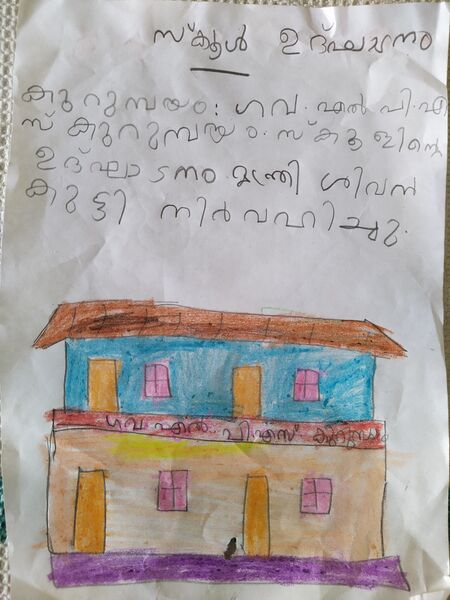 സ്കൂൾ ഉദ്ഘാടനം
കുറുമ്പയം: ഗവ. എൽ. പി. എ
സ് കുറുമ്പയം. സ്കൂളിന്റെ
ഉദ്ഘാടനം മന്ത്രി ശിവൻ
കുട്ടി നിർവഹിച്ചു.
ഗവ എൽ പിഎസ് കുറുമ്പയം